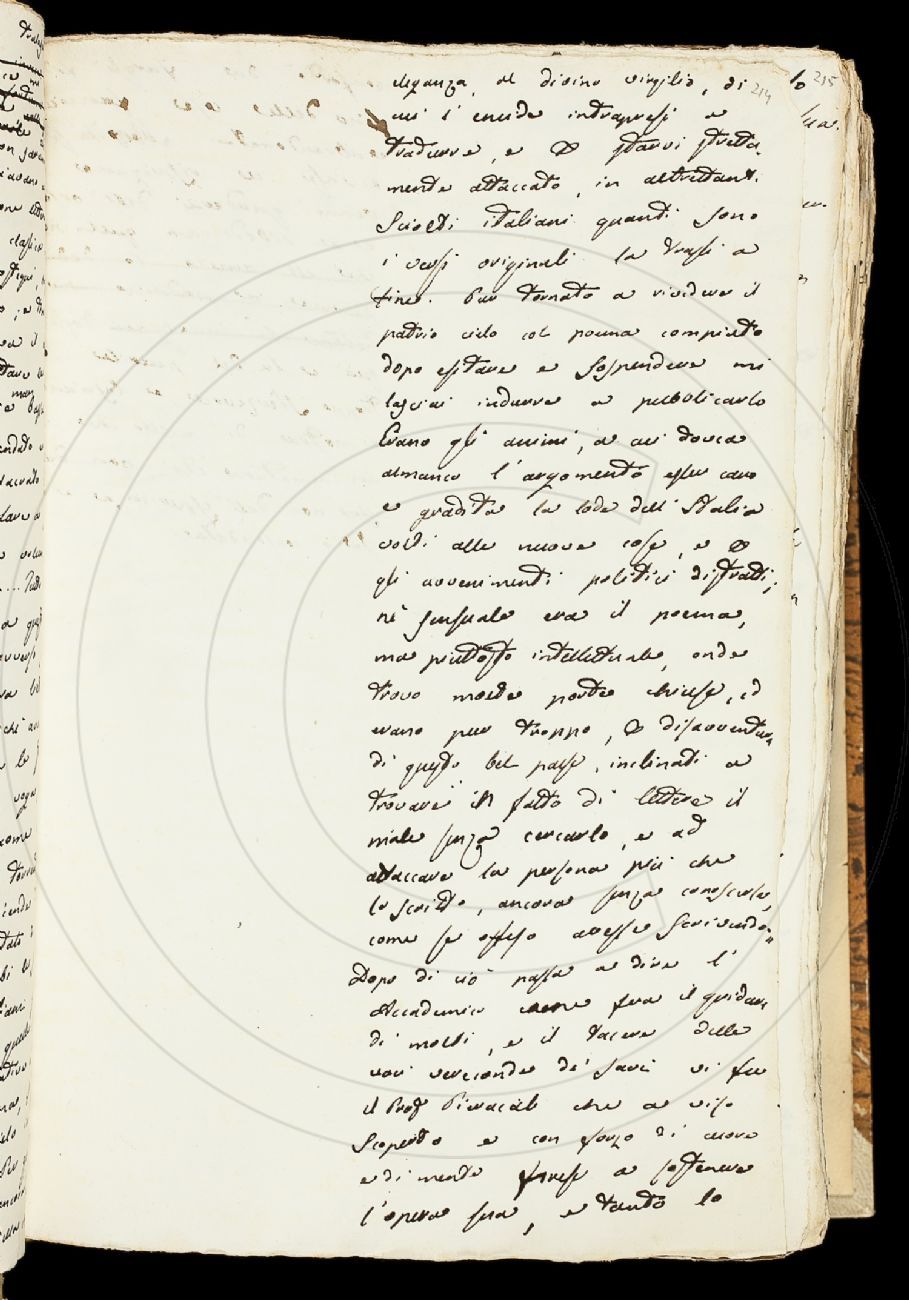 eleganza, al divino virgilio, di 214
cui l'eneide intrapresi a
tradurre, e starvi stretta
mente attaccato, in altrettanti
Sciolti italiani quanti sono
i versi originali la trassi a
fine. Pur tornato a riveder il
patrio cielo col poema compiuto
dopo esitare e sospendere mi
lasciai indurre a pubblicarlo
Erano gli animi, a cui dovea
almanco l'argomento esser caro
e gradita la lode dell'Italia
volti alle nuove cose, e
gli avvenimenti politici distratti;
nè sensuale era il poema,
ma piuttosto intellettuale, onde
trovò molte porte chiuse, ed
erano pur troppo, disavventura
di questo bel paese, inclinati a
trovare in fatto di lettere il
male senza cercarlo, e ad
attaccare la persona più che
lo scritto, ancora senza conoscerla,
come se offeso avesse scrivendo"
Dopo di ciò passa a dire l'
Accademico come fra il gridare
di molti, e il tacere delle
voci vereconde de' savi vi fu
il Prof Pieracioli che a viso
Scoperto e con sforzo di cuore
e di mente prese a sostenere
l'opera sua, e tanto lo
215